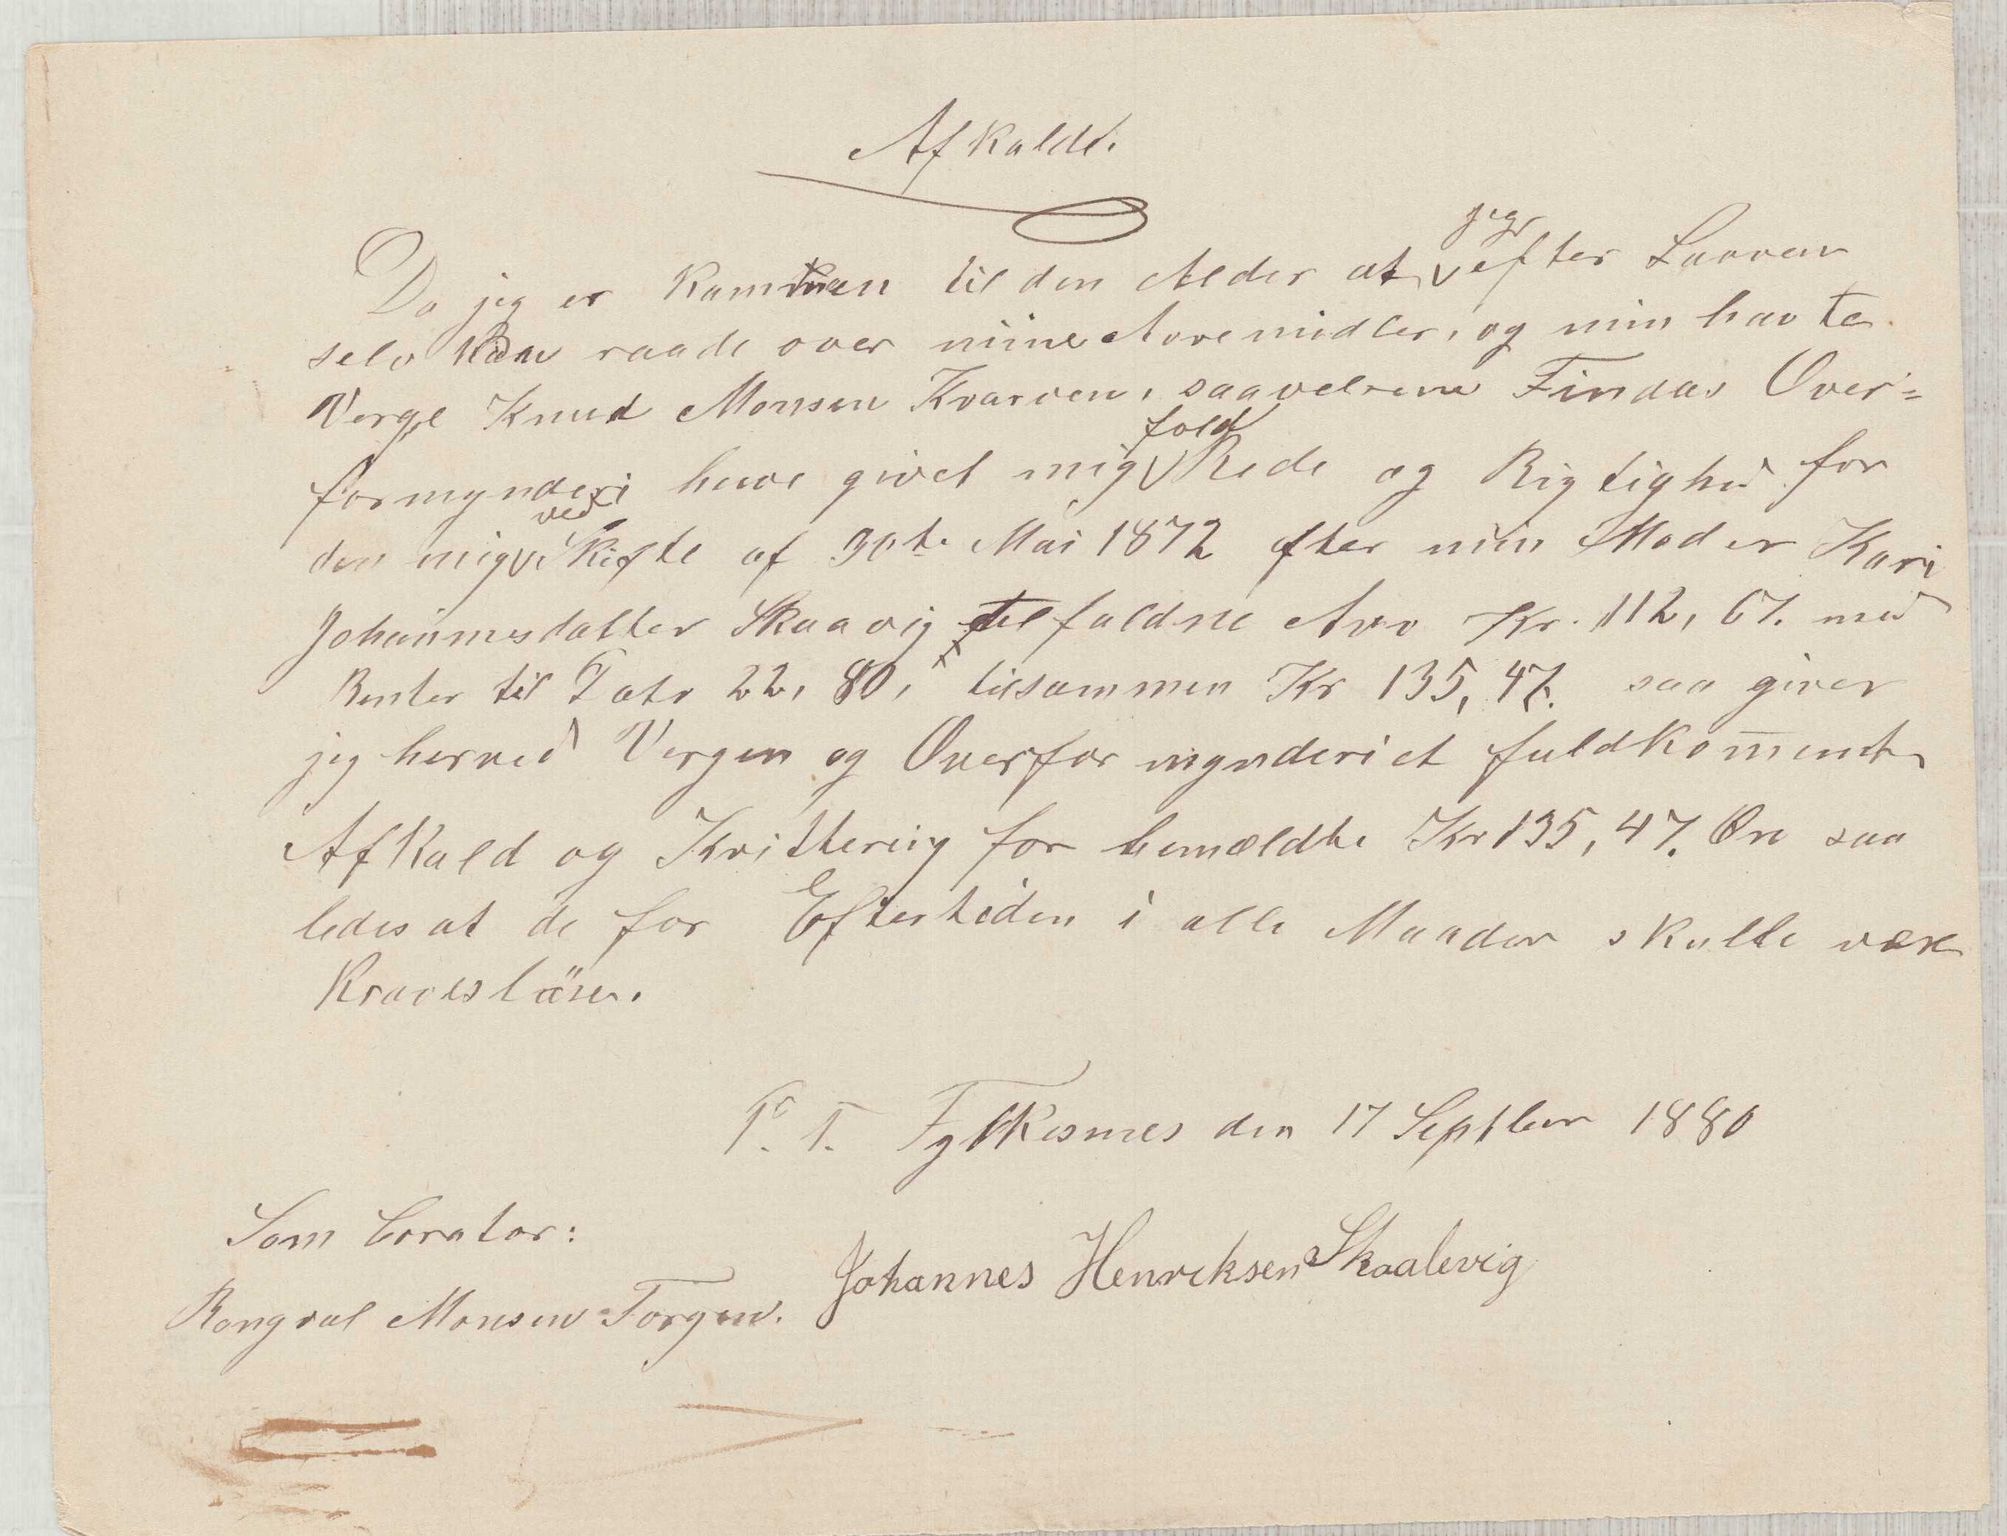 Afkald.
Da jeg er kommen til den Alder at jeg efter Loven
selv kan raade over mine Arvemidler, og min havte
Verge Knud Monsen Kvarven, saavelsom Findaas Over=
formynderi have givet mig fuld Rede og Rigtighed for
den mig ved Skifte af 30te Mai 1872 efter min Moder Kari
Johannesdatter Skaavig tilfaldne Arv Kr. 112, 67. med
Renter til Dato 22, 80, tilsammen Kr 135, 47. saa giver
jeg herved Vergen og Overformynderiet fuldkomment
Afkald og Kvittering for bemældte Kr 135, 47. Øre saa
ledes at de for Eftertiden i alle Maader skulle være
Kravesløse.
P. T. Fylkesnes den 17 Septbr 1880
Som Curator:
Johannes Henriksen Skaalevig
Rongval Monsen Torgen.